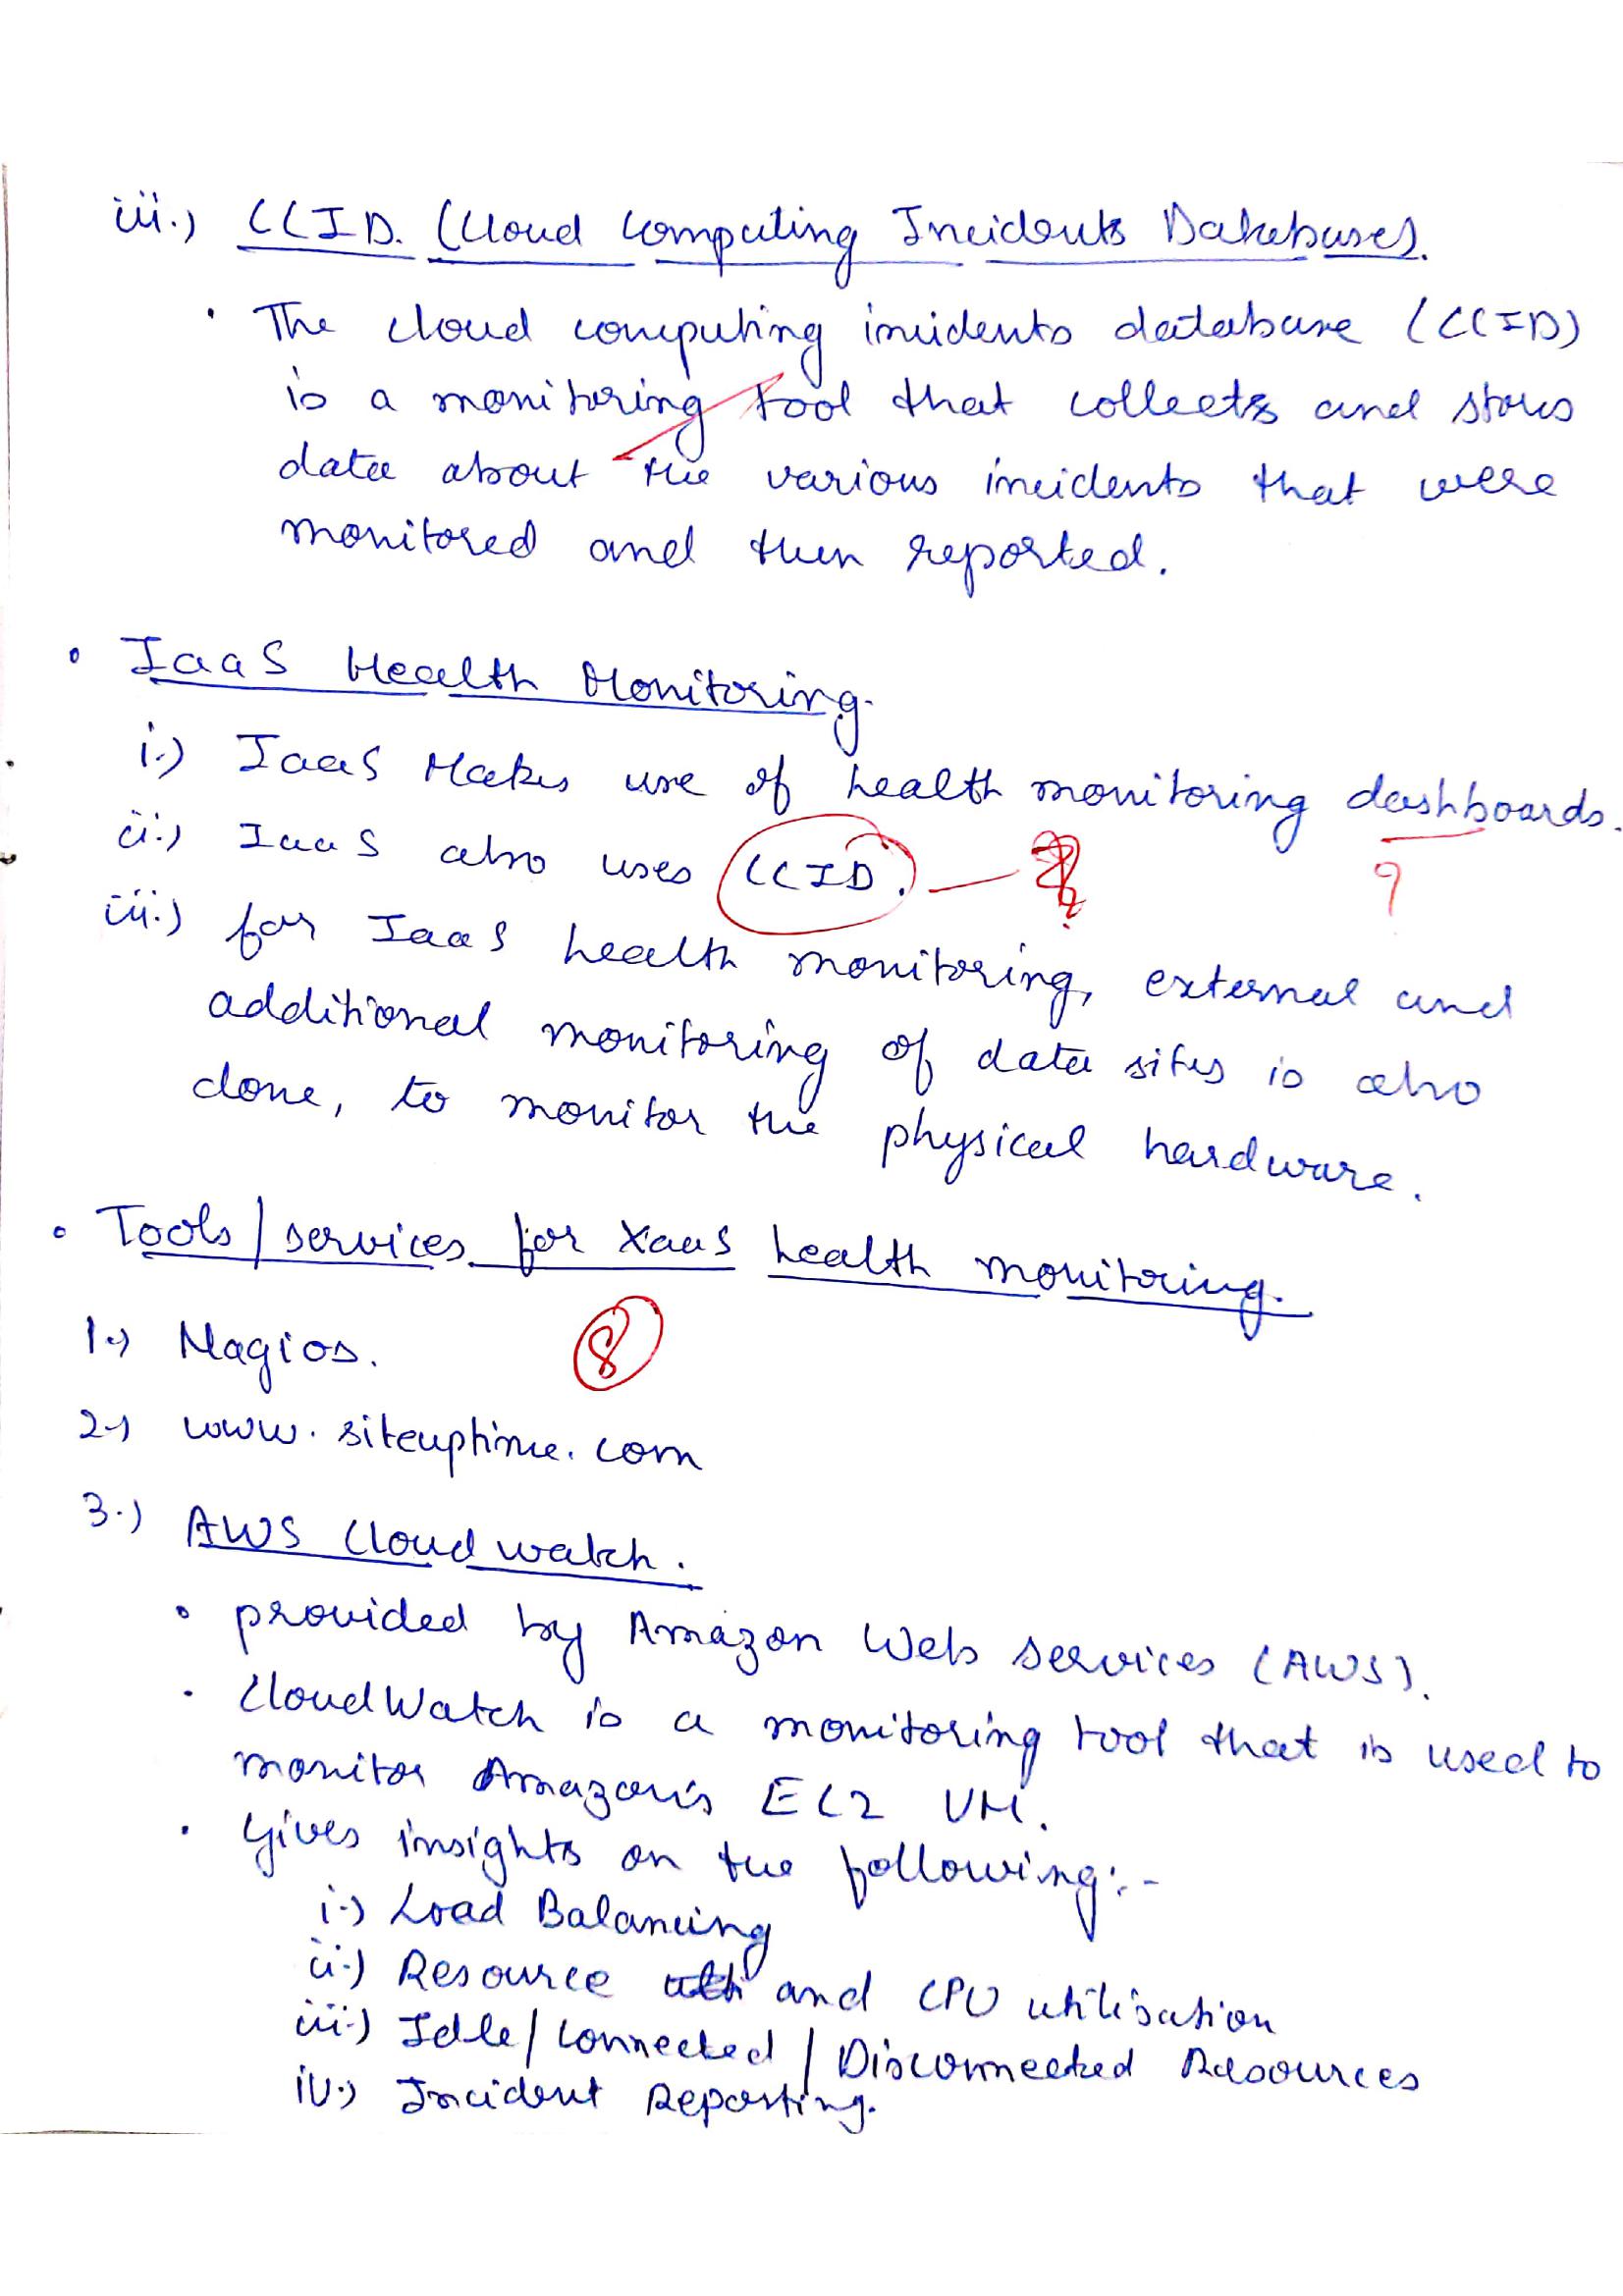 iii.) CCID. (Cloud Computing Incidents Database).
• The cloud computing incidents database (CCID)
is a monitoring tool that collects and stores
data about the various incidents that were
monitored and then reported.
• IaaS Health Monitoring.
i.) IaaS Makes use of health monitoring dashboards.
?
ii.) IaaS also uses CCID. —
iii.) for IaaS health monitoring, external and
additional monitoring of data sites is also
done, to monitor the physical hardware.
• Tools/services for XaaS health monitoring.
1.) Nagios.
8
2.) www.siteuptime.com
3.) AWS Cloud watch.
• provided by Amazon Web services (AWS).
• CloudWatch is a monitoring tool that is used to
monitor Amazon's EC2 VM.
• Gives insights on the following:-
i.) Load Balancing
ii.) Resource and CPU utilisation
iii.) Idle/Connected/Disconnected Resources
iv.) Incident Reporting.